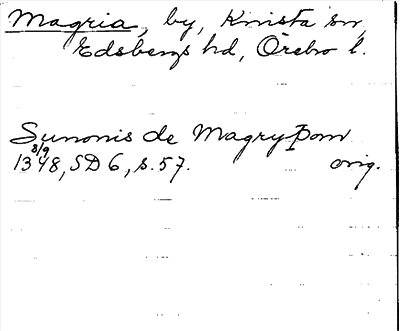 Magria, by, Knista sn,
Edsbergs hd, Örebro l.
Sunonis de Magry Dom
8/9
1348, SD 6, s. 57. orig.